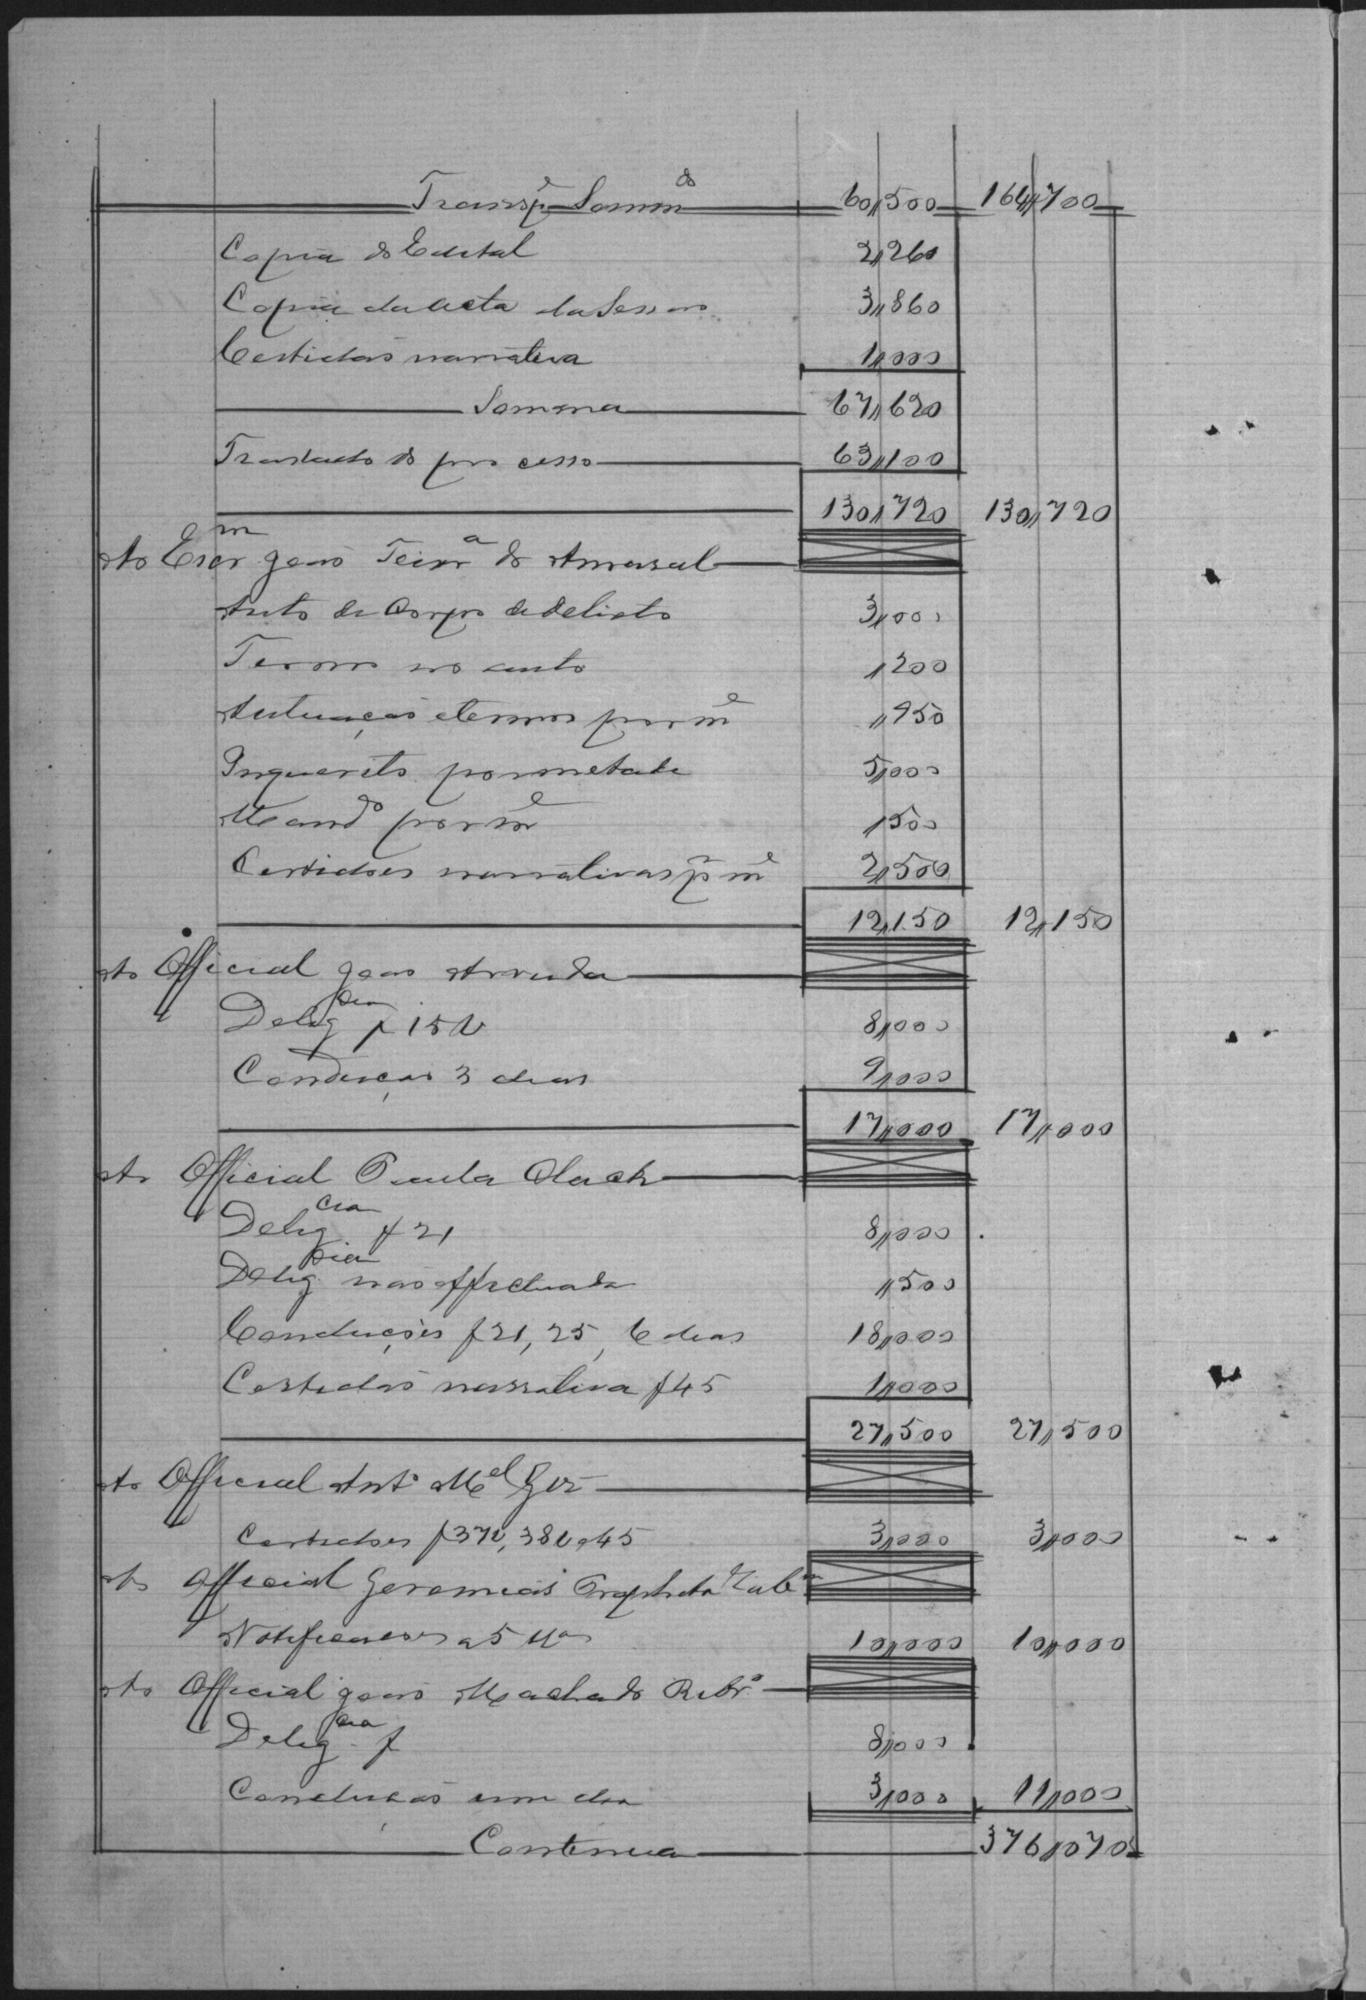 Transp.e Somm.do 60,,500 164,,700
Copia do Edital 2,,260
Copia da Acta da Sessão 3,,860
Certidão narrativa 1,,000
Somma 67,,620
Traslado do processo 63,,100
130,,720 130,,720
Ao Escr.m João Teixr.a do Amaral
Auto de Corpo de delicto 3,,000
Termo no auto ,,200
Autuação e termos por m.e ,,950
Inquerito por metade 5,,000
Mand.o por m.e ,,500
Certidões narrativas p.r m.e 2,,500
12,,150 12,,150
Ao Official João Arruda
Delig.cia f 15 v 8,,000
Condução 3 dias 9,,000
17,,000 17,,000
Ao Official Paula Black
Delig.cia f 21 8,,000
Delig.cia não effectuada ,,500
Conducções f 21, 25, 6 dias 18,,000
Certidão narrativa f 45 1,,000
27,,500 27,,500
Ao Official Ant.o M.el
Certidões f 37v, 38v e 45 3,,000 3,,000
Ao Official Geremias Propheta
Notificações a 5 10,,000 10,,000
Ao Official João Machado Ribr.o
Delig.cia f 8,,000
Condução um dia 3,,000 11,,000
Continua 376,,070